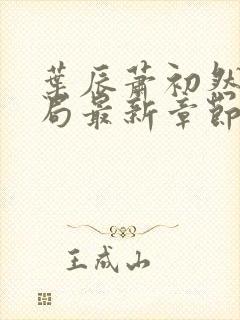 葉辰蕭初然
局最新章節
王成山